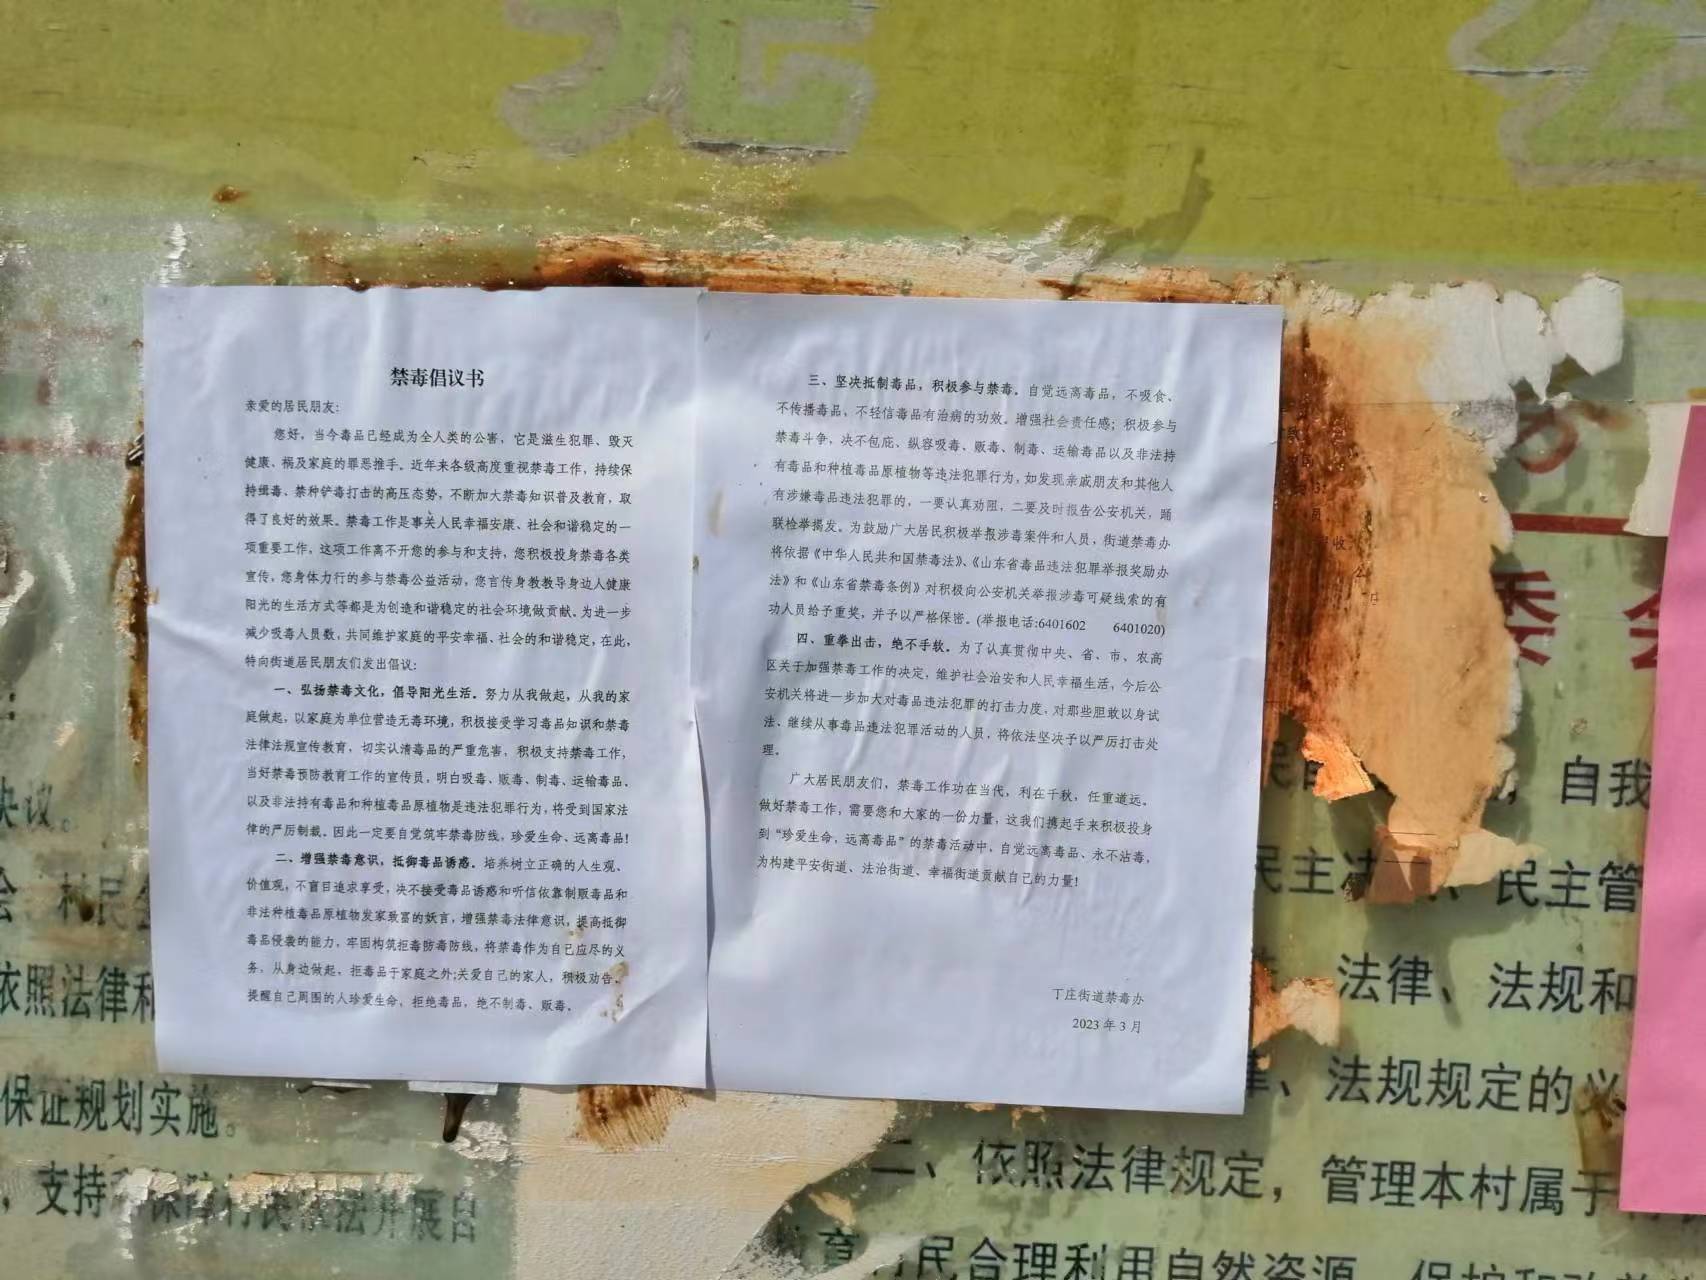 禁毒倡议书
亲爱的居民朋友：
您好，当今毒品已经成为全人类的公害，它是滋生犯罪、毁灭
健康、祸及家庭的罪恶推手。近年来各级高度重视禁毒工作，持续保
持缉毒、禁种铲毒打击的高压态势，不断加大禁毒知识普及教育，取
得了良好的效果。禁毒工作是事关人民幸福安康、社会和谐稳定的一
项重要工作，这项工作离不开您的参与和支持，您积极投身禁毒各类
宣传，您身体力行的参与禁毒公益活动，您言传身教教导身边人健康
阳光的生活方式等都是为创造和谐稳定的社会环境做贡献。为进一步
减少吸毒人员数，共同维护家庭的平安幸福、社会的和谐稳定，在此，
特向街道居民朋友们发出倡议：
一、弘扬禁毒文化，倡导阳光生活。努力从我做起，从我的家
庭做起，以家庭为单位营造无毒环境，积极接受学习毒品知识和禁毒
法律法规宣传教育，切实认清毒品的严重危害，积极支持禁毒工作，
当好禁毒预防教育工作的宣传员，明白吸毒、贩毒、制毒、运输毒品、
以及非法持有毒品和种植毒品原植物是违法犯罪行为，将受到国家法
律的严厉制裁。因此一定要自觉筑牢禁毒防线，珍爱生命、远离毒品！
二、增强禁毒意识，抵御毒品诱惑。培养树立正确的人生观、
价值观，不盲目追求享受，决不接受毒品诱惑和听信依靠制贩毒品和
非法种植毒品原植物发家致富的妖言，增强禁毒法律意识，提高抵御
毒品侵袭的能力，牢固构筑拒毒防毒防线，将禁毒作为自己应尽的义
务，从身边做起，拒毒品于家庭之外；关爱自己的家人，积极劝告、
提醒自己周围的人珍爱生命，拒绝毒品，绝不制毒、贩毒。
三、坚决抵制毒品，积极参与禁毒。自觉远离毒品，不吸食、
不传播毒品，不轻信毒品有治病的功效。增强社会责任感；积极参与
禁毒斗争，决不包庇、纵容吸毒、贩毒、制毒、运输毒品以及非法持
有毒品和种植毒品原植物等违法犯罪行为，如发现亲戚朋友和其他人
有涉嫌毒品违法犯罪的，一要认真劝阻，二要及时报告公安机关，踊
联检举揭发。为鼓励广大居民积极举报涉毒案件和人员，街道禁毒办
将依据《中华人民共和国禁毒法》、《山东省毒品违法犯罪举报奖励办
法》和《山东省禁毒条例》对积极向公安机关举报涉毒可疑线索的有
功人员给予重奖，并予以严格保密。（举报电话：6401602 6401020）
四、重拳出击，绝不手软。为了认真贯彻中央、省、市、农高
区关于加强禁毒工作的决定，维护社会治安和人民幸福生活，今后公
安机关将进一步加大对毒品违法犯罪的打击力度，对那些胆敢以身试
法、继续从事毒品违法犯罪活动的人员，将依法坚决予以严厉打击处
理。
广大居民朋友们，禁毒工作功在当代，利在千秋，任重道远。
做好禁毒工作，需要您和大家的一份力量，这我们携起手来积极投身
到“珍爱生命，远离毒品”的禁毒活动中，自觉远离毒品、永不沾毒，
为构建平安街道、法治街道、幸福街道贡献自己的力量！
丁庄街道禁毒办
2023年3月
委
决议。
，自我
民主决 、民主管
村民
依照法律和
法律、法规和
保证规划实施。
、法规规定的义
，支持
二、依照法律规定，管理本村属于
育村民合理利用自然资源，保护和改善